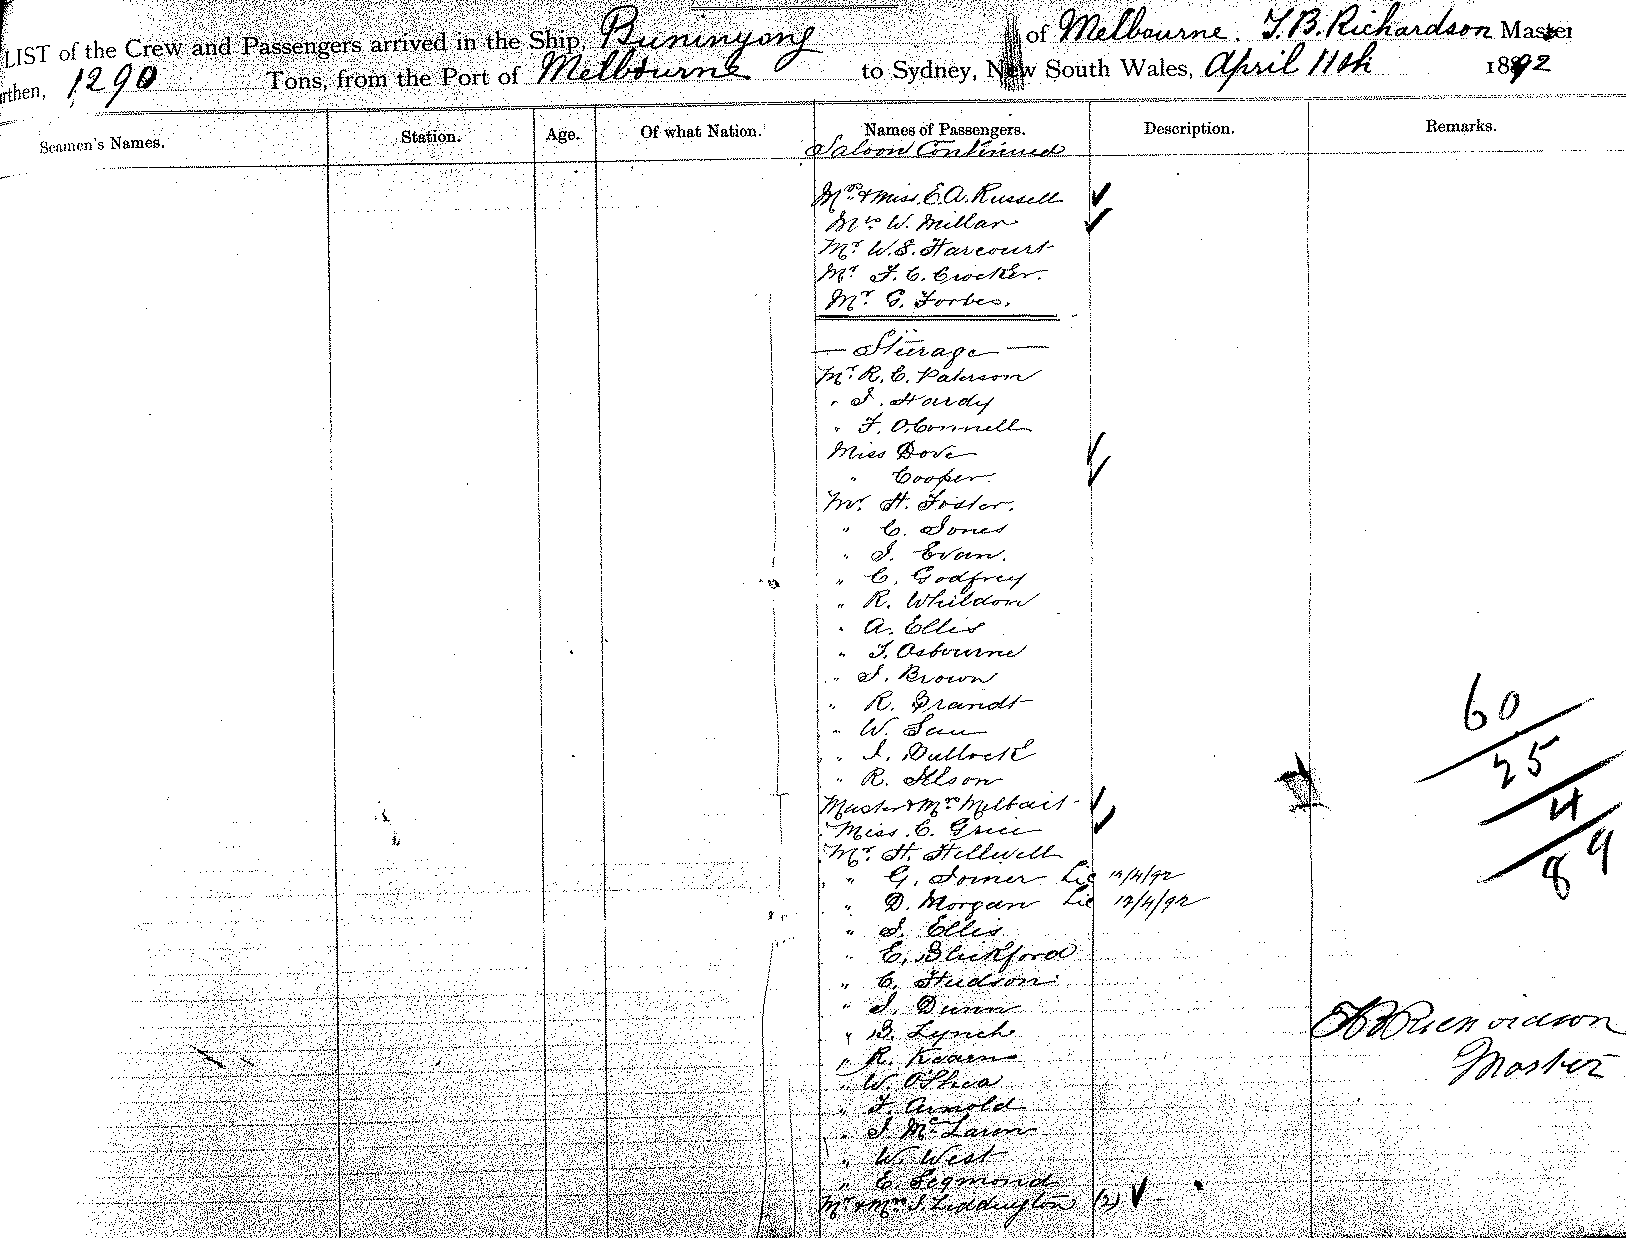 LIST of the Crew and Passengers arrived in the Ship, Buninyong of Melbourne. T. B. Richardson Master
rthen, 1290 Tons, from the Port of Melbourne to Sydney, New South Wales, April 11th 1892
Seamen's Names. Station. Age. Of what Nation. Names of Passengers. Description. Remarks.
Saloon Continued
Mrs & Miss E. A. Russell ✓
Mrs W. Millar ✓
Mr W. S. Harcourt
Mr F. C. Crocker.
Mr G. Forbes.
— Steerage —
Mr R. C. Paterson
" J. Hardy
" F. O'Connell
Miss Dove ✓
" Cooper ✓
Mr H. Foster.
" C. Jones
" J. Evan.
" C. Godfrey
" R. Whildon
" A. Ellis
" T. Osbourne
" J. Brown
" R. Brandt
" W.
" J. Bullock
" R.
Master & Mrs ✓
Miss C. Grice ✓
Mr H. Hellwell
" G. Joiner Lic 12/4/92
" D. Morgan Lic 12/4/92
" J. Ellis
" C. Blickford
" C. Hudson
" J. Dunn
" B. Lynch
" R. Kearn
" W. O'Shea
" F. Arnold
" J. McLaren
" W. West
" E. Segmond
Mr & Mrs J. Liddington (2) ✓
60
25
4
89
T B Richardson
Master